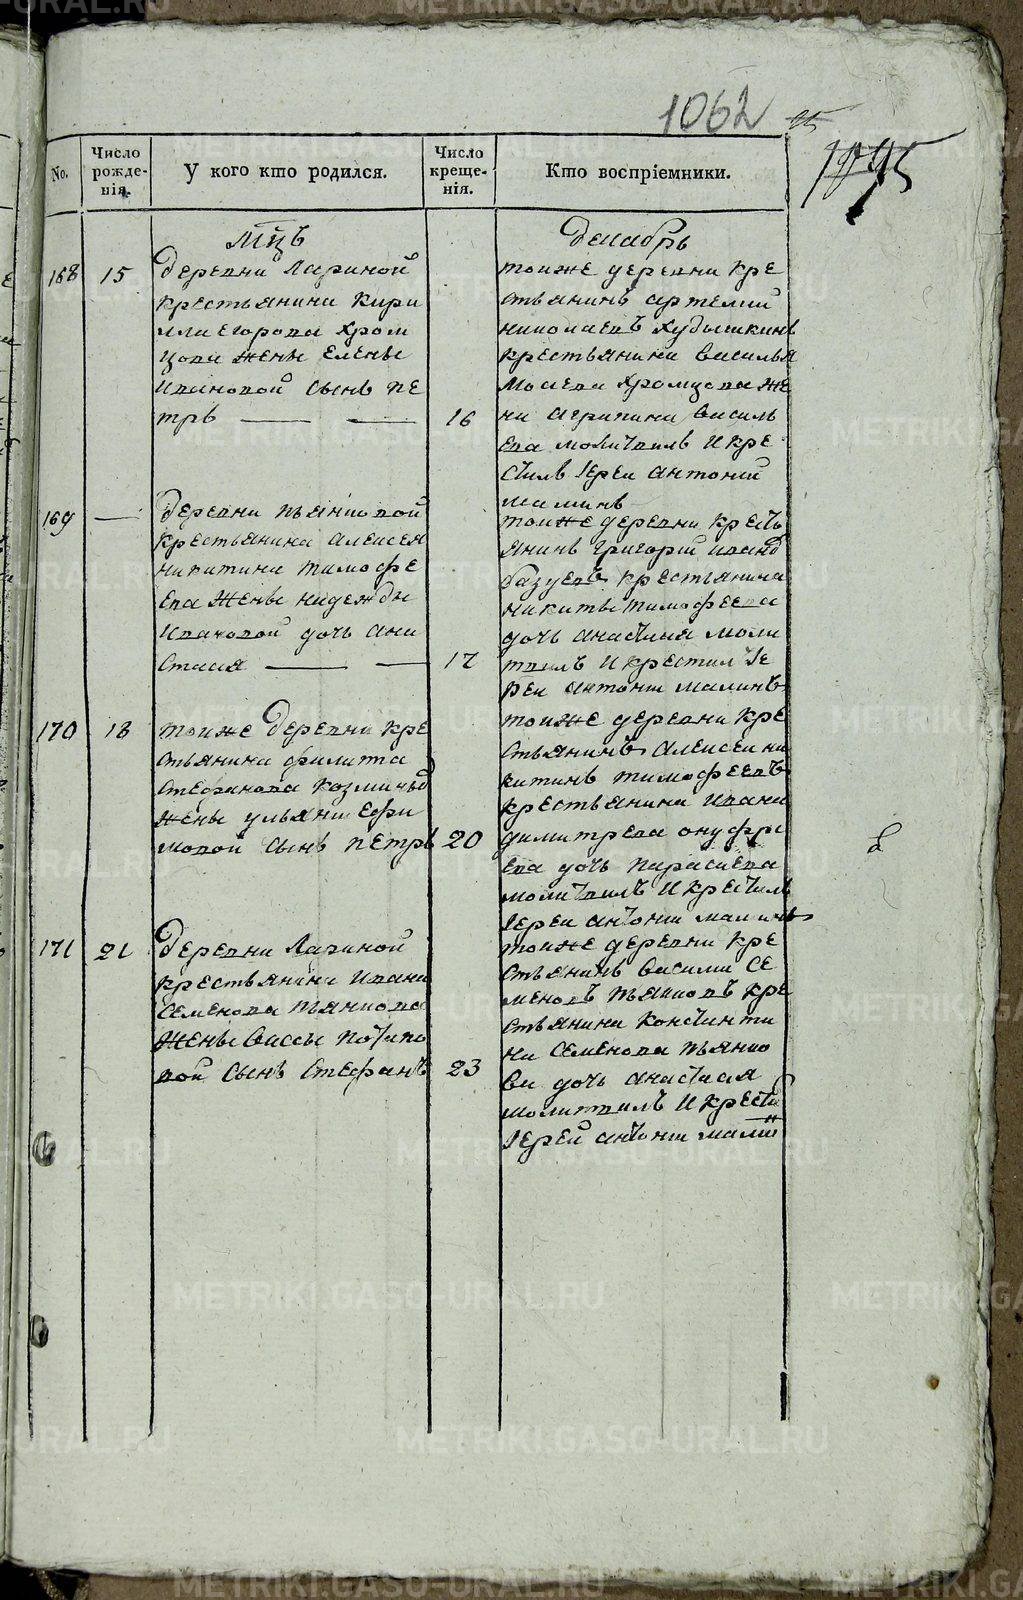 1062
1095
No.
Число рожде-нія.
У кого кто родился.
Число креще-нія.
Кто воспріемники.
Мцъ
Декабрь
168 15
деревни Лариной
крестьянина Кири
лла Егорова Хром
цова жены Елены
Ивановой сынъ Пе
тръ
16
тоиже деревни кре
стьянинъ Артемий
Николаевъ Худышкинъ
крестьянина Василья
Моисева Хромцова же
на Агрипина Василь
ева молитвилъ и кре
стилъ Іереи Антоній
Малинъ
169
деревни Пьянковой
крестьянина Алексея
Никитина Тимофе
ева жены Надежды
Ивановой дочь Ана
стасия
17
тоиже деревни кресть
янинъ Григорий Иванов
Базуевъ крестьянина
Никиты Тимофеева
дочь Анастасия моли
твилъ и крестил Іе
реи Антони Малинъ
170 18
тоиже деревни кре
стьянина Филиппа
Стефанова Козминых
жены Ульяни Ефи
мовой сынъ Петръ
20
тоиже деревни кре
стьянинъ Алексеи Ни
китинъ Тимофеевъ
крестьянина Ивана
Димитрева Онуфри
ева дочь Параскева
молитвилъ и крестилъ
Іереи Антони Малинъ
171 21
деревни Лариной
крестьянина Ивана
Семенова Пьянкова
жены Вассы Потапо
вой сынъ Стефанъ
23
тоиже деревни кре
стьянинъ Василии Се
меновъ Пьянковъ кре
стьянина Констянти
на Семенова Пьянко
ва дочь Анастасия
молитвилъ и крести
Іерей Антони Малин
METRIKI.GASO-URAL.RU